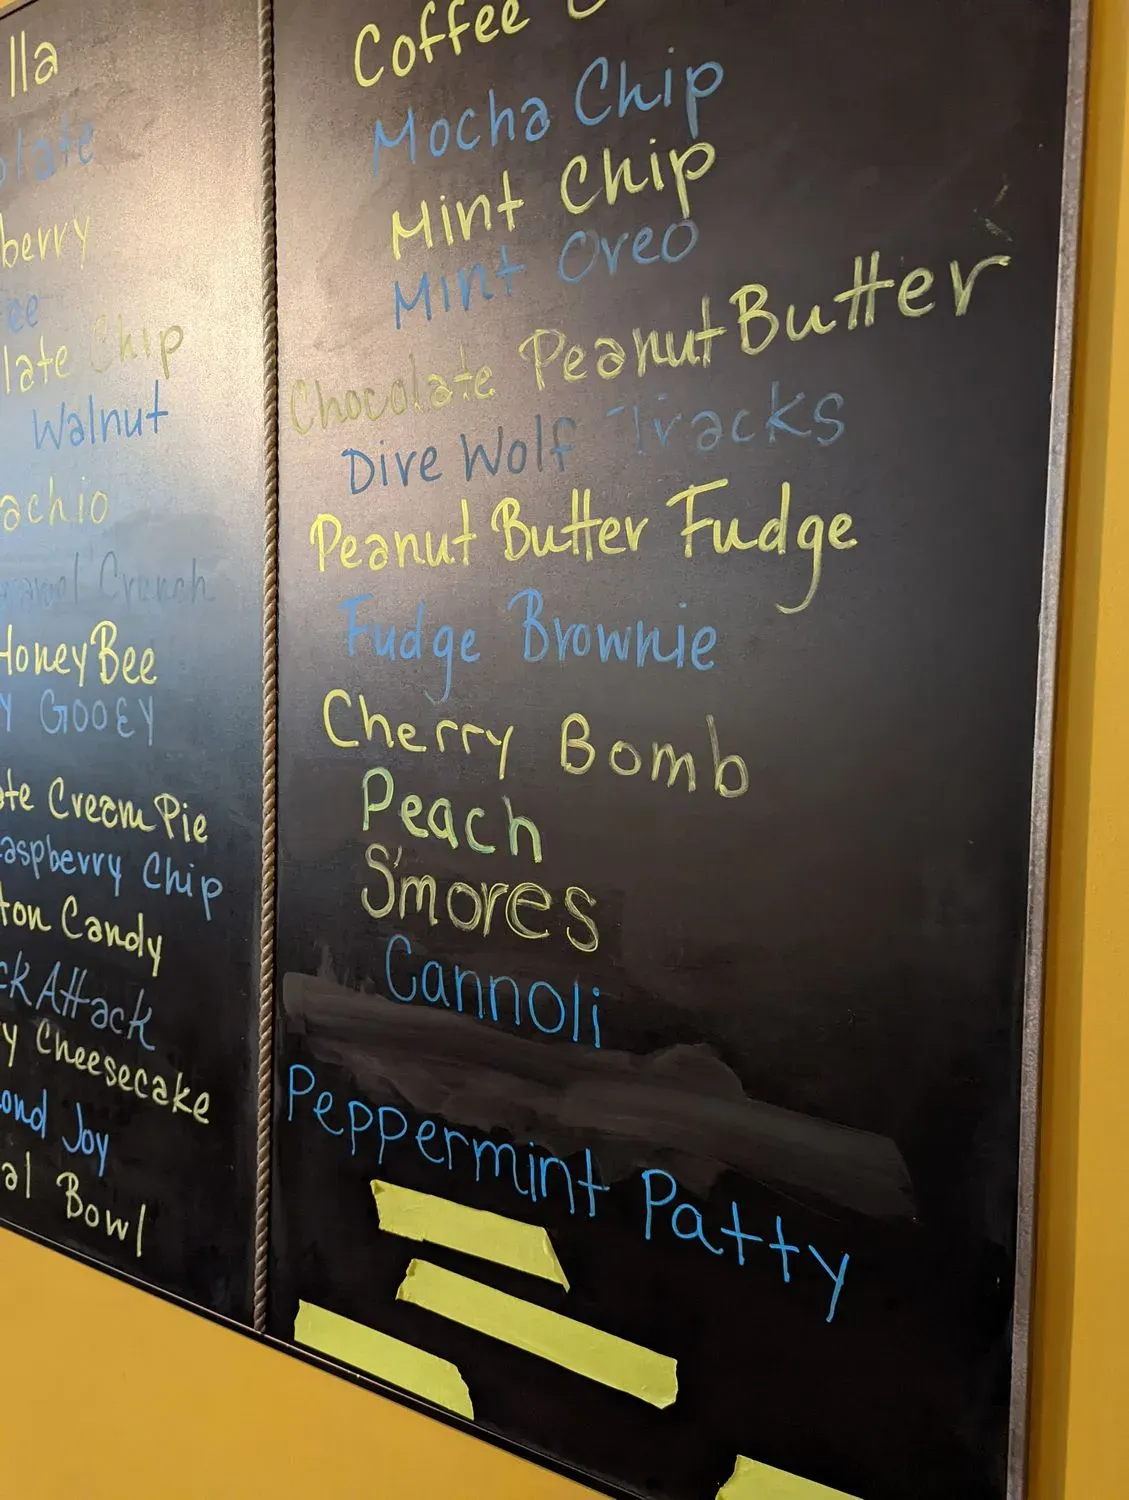 lla
late
berry
ee
late Chip
Walnut
achio
Crunch
HoneyBee
Y GOOEY
te Cream Pie
aspberry Chip
ton Candy
ck Attack
y Cheesecake
ond Joy
al Bowl
Coffee
Mocha Chip
Mint Chip
Mint Oreo
Chocolate Peanut Butter
Dire Wolf Tracks
Peanut Butter Fudge
Fudge Brownie
Cherry Bomb
Peach
S'mores
Cannoli
Peppermint Patty